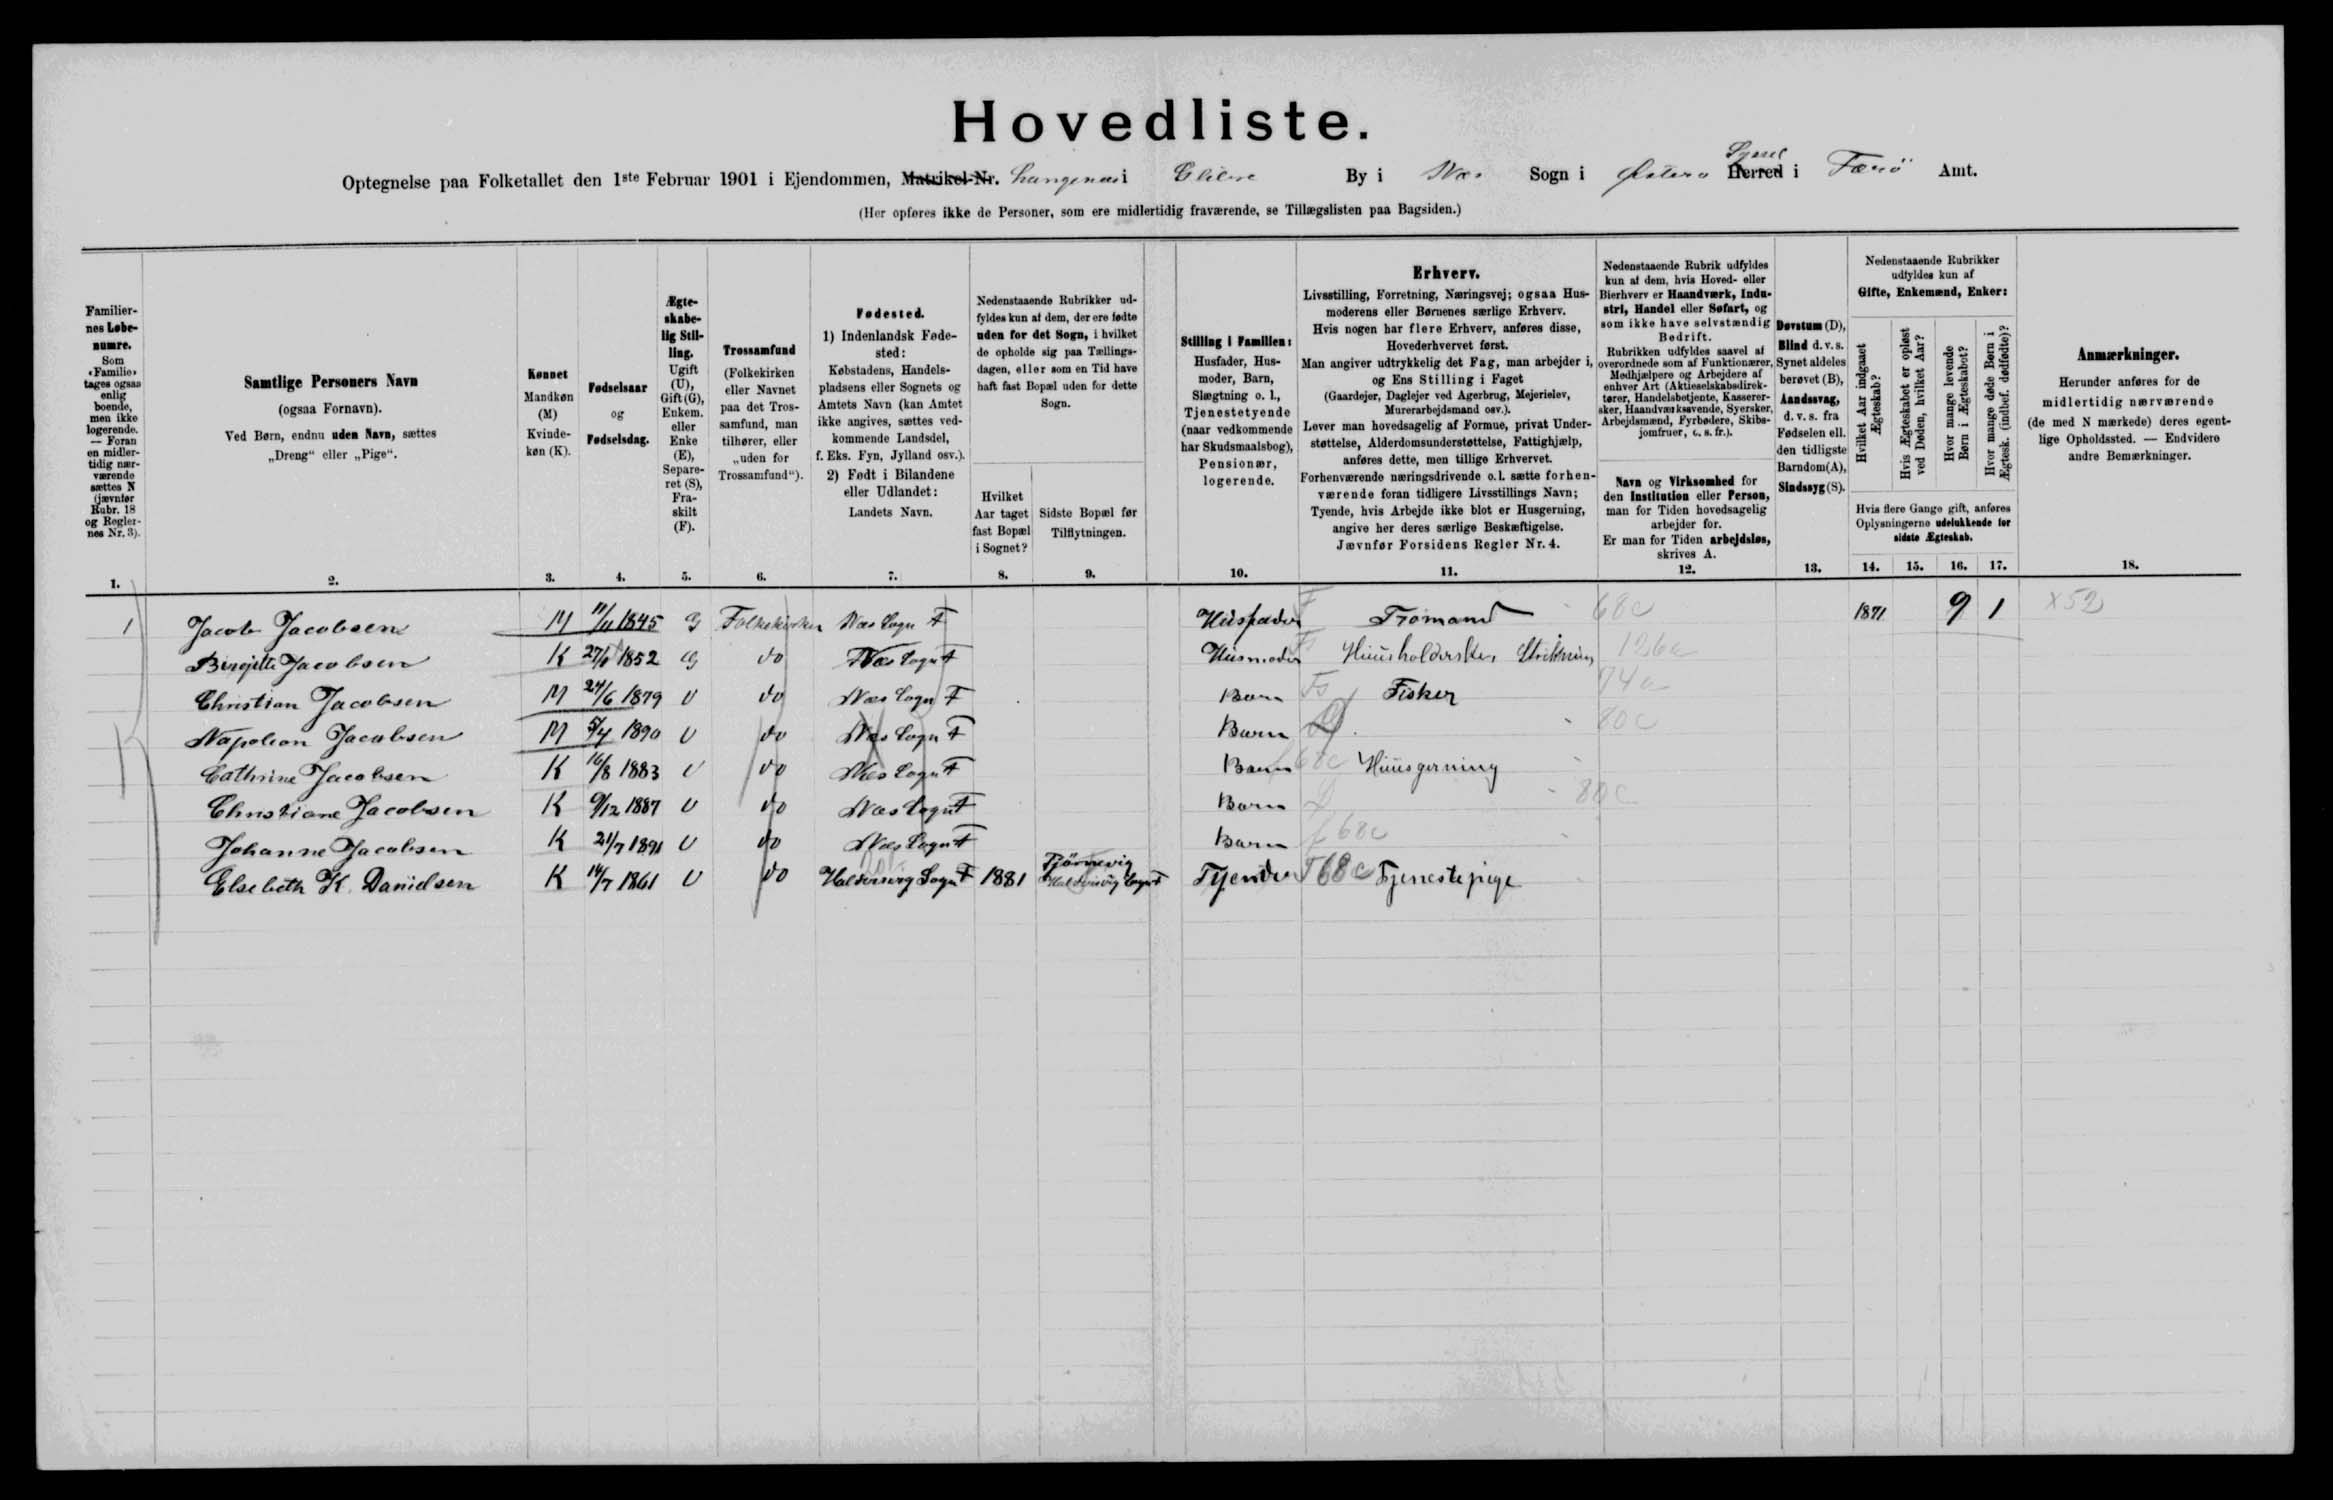 Hovedliste.
Optegnelse paa Folketallet den 1ste Februar 1901 i Ejendommen, Matrikel-Nr. Langenæs i Elilere By i Næs Sogn i Østerø Herred Syssel i Færö Amt.
(Her opføres ikke de Personer, som ere midlertidig fraværende, se Tillægslisten paa Bagsiden.)
Familiernes Løbenumre.
Som «Familie» tages ogsaa enlig boende, men ikke logerende. — Foran en midlertidig nærværende sættes N (jævnfør Rubr. 18 og Reglernes Nr. 3).
1.
Samtlige Personers Navn
(ogsaa Fornavn).
Ved Børn, endnu uden Navn, sættes
„Dreng“ eller „Pige“.
2.
Kønnet
Mandkøn (M)
Kvindekøn (K).
3.
Fødselsaar
og
Fødselsdag.
4.
Ægteskabelig Stilling.
Ugift (U), Gift (G), Enkem. eller Enke (E), Separeret (S), Fraskilt (F).
5.
Trossamfund
(Folkekirken eller Navnet paa det Trossamfund, man tilhører, eller „uden for Trossamfund“).
6.
Fødested.
1) Indenlandsk Fødested:
Købstadens, Handelspladsens eller Sognets og Amtets Navn (kan Amtet ikke angives, sættes vedkommende Landsdel, f. Eks. Fyn, Jylland osv.).
2) Født i Bilandene eller Udlandet:
Landets Navn.
7.
Nedenstaaende Rubrikker udfyldes kun af dem, der ere fødte uden for det Sogn, i hvilket de opholde sig paa Tællingsdagen, eller som en Tid have haft fast Bopæl uden for dette Sogn.
Hvilket Aar taget fast Bopæl i Sognet?
8.
Sidste Bopæl før Tilflytningen.
9.
Stilling i Familien:
Husfader, Husmoder, Barn, Slægtning o. l., Tjenestetyende (naar vedkommende har Skudsmaalsbog), Pensionær, logerende.
10.
Erhverv.
Livsstilling, Forretning, Næringsvej; ogsaa Husmoderens eller Børnenes særlige Erhverv.
Hvis nogen har flere Erhverv, anføres disse, Hovederhvervet først.
Man angiver udtrykkelig det Fag, man arbejder i, og Ens Stilling i Faget
(Gaardejer, Daglejer ved Agerbrug, Mejerielev, Murerarbejdsmand osv.).
Lever man hovedsagelig af Formue, privat Understøttelse, Alderdomsunderstøttelse, Fattighjælp, anføres dette, men tillige Erhvervet.
Forhenværende næringsdrivende o. l. sætte forhenværende foran tidligere Livsstillings Navn;
Tyende, hvis Arbejde ikke blot er Husgerning, angive her deres særlige Beskæftigelse.
Jævnfør Forsidens Regler Nr. 4.
11.
Nedenstaaende Rubrik udfyldes kun af dem, hvis Hoved- eller Bierhverv er Haandværk, Industri, Handel eller Søfart, og som ikke have selvstændig Bedrift.
Rubrikken udfyldes saavel af overordnede som af Funktionærer, Medhjælpere og Arbejdere af enhver Art (Aktieselskabsdirektører, Handelsbetjente, Kasserersker, Haandværkssvende, Syersker, Arbejdsmænd, Fyrbødere, Skibsjomfruer, o. s. fr.).
Navn og Virksomhed for den Institution eller Person, man for Tiden hovedsagelig arbejder for.
Er man for Tiden arbejdsløs, skrives A.
12.
Døvstum (D),
Blind d. v. s. Synet aldeles berøvet (B),
Aandssvag, d. v. s. fra Fødselen ell. den tidligste Barndom (A),
Sindssyg (S).
13.
Nedenstaaende Rubrikker udfyldes kun af
Gifte, Enkemænd, Enker:
Hvilket Aar indgaaet Ægteskab?
Hvis Ægteskabet er opløst ved Døden, hvilket Aar?
Hvor mange levende Børn i Ægteskabet?
Hvor mange døde Børn i Ægtesk. (indbef. dødfødte)?
Hvis flere Gange gift, anføres Oplysningerne udelukkende for sidste Ægteskab.
14. 15. 16. 17.
Anmærkninger.
Herunder anføres for de midlertidig nærværende (de med N mærkede) deres egentlige Opholdssted. — Endvidere andre Bemærkninger.
18.
1 Jacob Jacobsen M 11/11 1845 G Folkekirken Næs Sogn F Husfader F Tromand 68c 1871 9 1 x52
Birgitte Jacobsen K 1852 G do Næs Sogn F Husmoder Fs Huusholderske, Strikning 126a
Christian Jacobsen M 24/6 1879 U do Næs Sogn F Barn Fs Fisker 74a
Napoleon Jacobsen M 5/4 1890 U do Næs Sogn F Barn D 80c
Cathrine Jacobsen K 16/8 1883 U do Næs Sogn F Barn f68c Huusgerning
Christiane Jacobsen K 9/12 1887 U do Næs Sogn F Barn D 80c
Johanne Jacobsen K 21/7 1891 U do Næs Sogn F Barn f 68c
Elsebeth K. Danielsen K 14/7 1861 U do Haldersvig Sogn F 1881 Tjörnevig Haldersvig Sogn F Tyende T 68c Tjenestepige